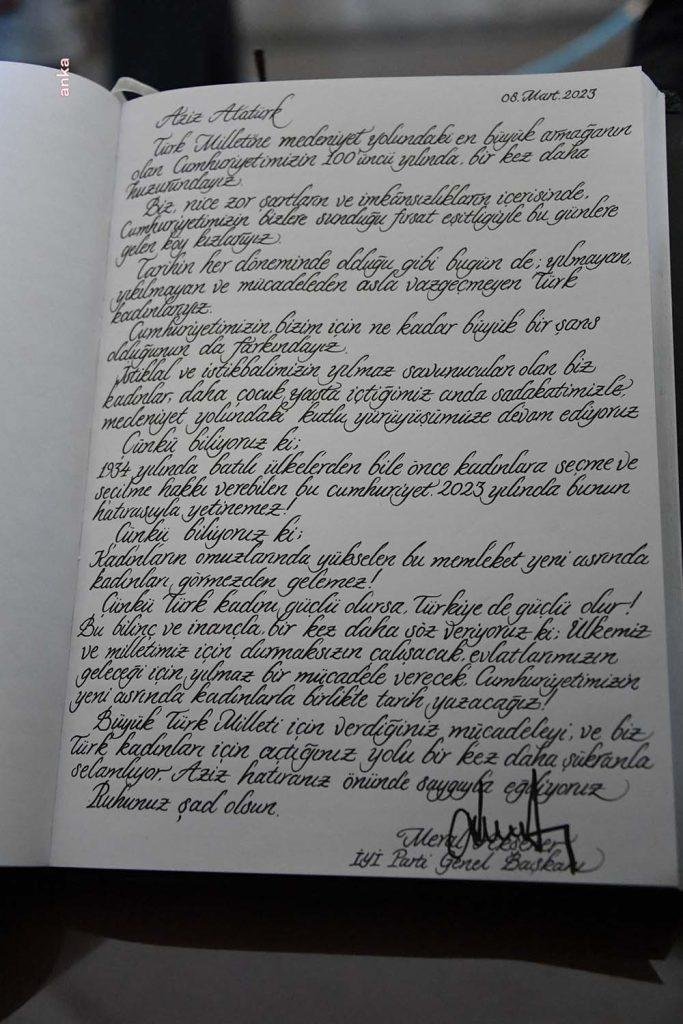 anka
08.Mart.2023
Aziz Atatürk
Türk Milletine medeniyet yolundaki en büyük armağanın
olan Cumhuriyetimizin 100'üncü yılında, bir kez daha
huzurundayız.
Biz, nice zor şartların ve imkânsızlıkların içerisinde,
Cumhuriyetimizin bizlere sunduğu fırsat eşitliğiyle bu günlere
gelen köy kızlarıyız.
Tarihin her döneminde olduğu gibi bugün de; yılmayan,
yıkılmayan ve mücadeleden asla vazgeçmeyen Türk
kadınlarıyız.
Cumhuriyetimizin, bizim için ne kadar büyük bir şans
olduğunun da farkındayız.
İstiklal ve istikbalimizin yılmaz savunucuları olan biz
kadınlar, daha çocuk yaşta içtiğimiz anda sadakatimizle,
medeniyet yolundaki kutlu yürüyüşümüze devam ediyoruz
Çünkü biliyoruz ki;
1934 yılında batılı ülkelerden bile önce kadınlara seçme ve
seçilme hakkı verebilen bu cumhuriyet, 2023 yılında bunun
hatırasıyla yetinemez!
Çünkü biliyoruz ki;
Kadınların omuzlarında yükselen bu memleket yeni asrında
kadınları görmezden gelemez!
Çünkü Türk kadını güçlü olursa, Türkiye de güçlü olur!
Bu bilinç ve inançla, bir kez daha söz veriyoruz ki; Ülkemiz
ve milletimiz için durmaksızın çalışacak, evlatlarımızın
geleceği için yılmaz bir mücadele verecek, Cumhuriyetimizin
yeni asrında kadınlarla birlikte tarih yazacağız!
Büyük Türk Milleti için verdiğiniz mücadeleyi, ve biz
Türk kadınları için açtığınız yolu bir kez daha şükranla
selamlıyor, Aziz hatıranız önünde saygıyla eğiliyoruz
Ruhunuz şad olsun.
Meral Akşener
İYİ Parti Genel Başkanı